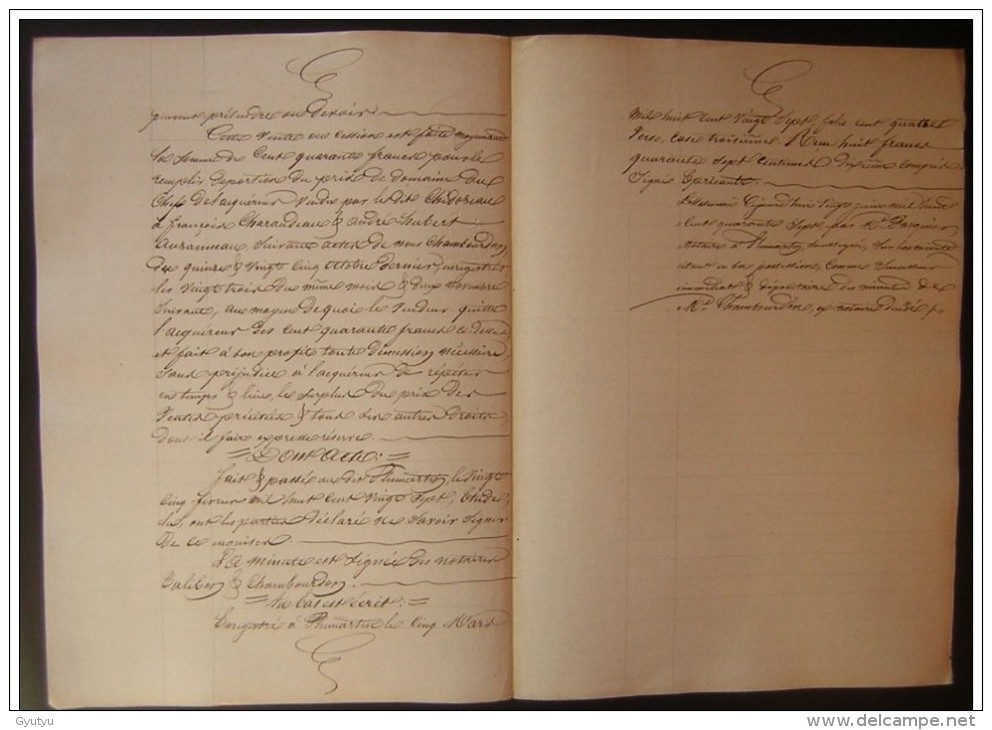 peuvent prétendre ou devoir.
Cette vente ou cession est faite moyennant
la somme de Cent quarante francs pour le
remplir de portion du prix de domaine du
Chef de l'acquéreur vendu par le dit Chedoreau
à françois Charaudeau & andré hubert
Auzanneau, suivant actes de nous Chambourdon
des quinze & vingt cinq Octobre dernier, enregistrés
les vingt trois du même mois & deux Novembre
suivant, au moyen de quoi le vendeur quitte
l'acquéreur des cent quarante francs ci dessus
et fait à son profit toute démission nécessaire
sans préjudice à l'acquéreur de répéter
en temps & lieu, le surplus du prix des
Ventes précitées & tous ses autres droits
dont il fait expresse réserve.
= Dont acte: =
fait & passé au dit Plumartin, le vingt
cinq février mil huit cent vingt sept,
lu, ont les parties déclaré ne savoir signer
De ce enquises.
La minute est signée des notaires
& Chambourdon.
= Au bas est écrit: =
Enregistré à Plumartin le cinq Mars
Mil huit cent vingt sept, folio cent quatre
verso, case troisième Reçu huit francs
quarante sept centimes dixième compris
Signé
Cejourd'hui vingt juin mil huit
Cent quarante sept, par Me Parquier
Notaire à Plumartin, soussigné, sur la minute
étant en sa possession, comme successeur
immédiat & dépositaire des minutes de
Me Chambourdon, ex notaire
Gyutyu
www.delcampe.net